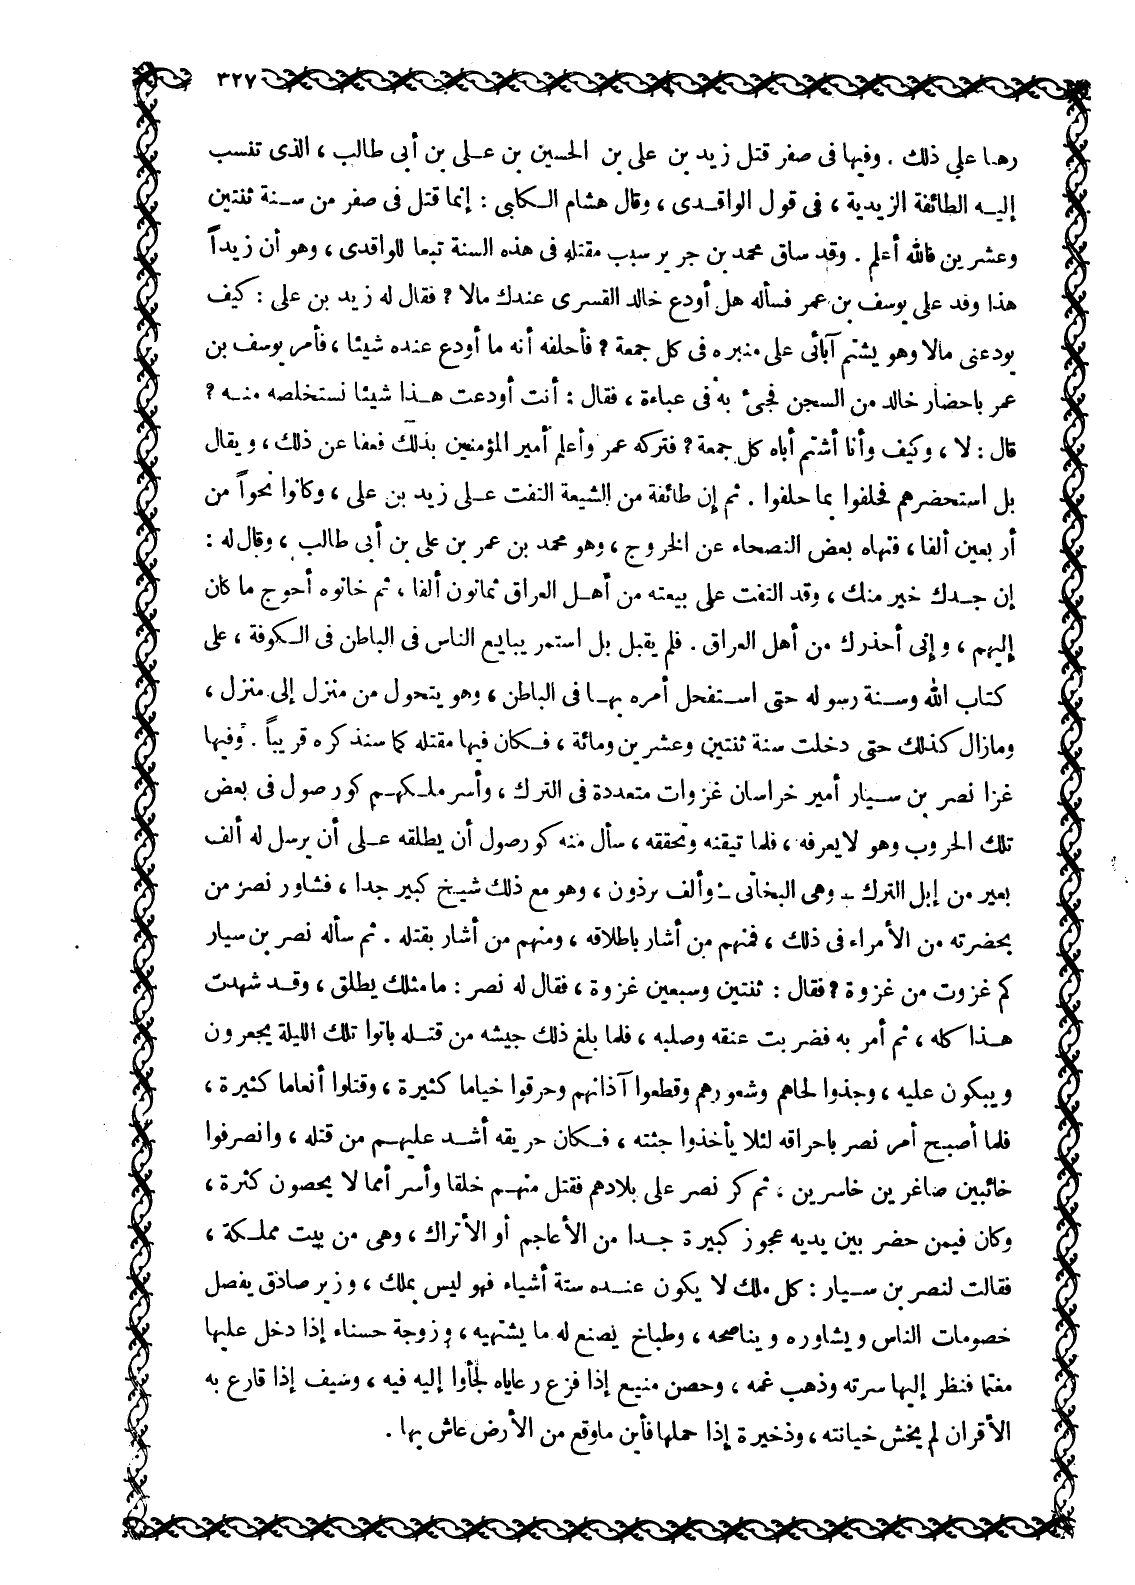 ٣٢٧
رها على ذلك . وفيها فى صفر قتل زيد بن على بن الحسين بن عـلى بن أبى طالب ، الذى تنسب
إليـه الطائفة الزيدية ، فى قول الواقـدى ، وقال هشام الـكلبى : إنما قتل فى صفر من سـنة ثنتين
وعشرين فالله أعلم . وقد ساق محمد بن جرير سبب مقتله فى هذه السنة تبعا للواقدى ، وهو أن زيداً
هذا وفد على يوسف بن عمر فسأله هل أودع خالد القسرى عندك مالا ? فقال له زيد بن على : كيف
يودعنى مالا وهو يشتم آبائى على منبره فى كل جمعة ? فأحلفه أنه ما أودع عنده شيئا ، فأمر يوسف بن
عمر باحضار خالد من السجن فجىء به فى عباءة ، فقال : أنت أودعت هـذا شيئا نستخلصه منـه ?
قال : لا ، وكيف وأنا أشتم أباه كل جمعة ? فتركه عمر وأعلم أمير المؤمنين بذلك فعفا عن ذلك ، ويقال
بل استحضرهم فحلفوا بما حلفوا . ثم إن طائفة من الشيعة التفت عـلى زيد بن على ، وكانوا نحواً من
أربعين ألفا ، فنهاه بعض النصحاء عن الخروج ، وهو محمد بن عمر بن على بن أبى طالب ، وقال له :
إن جـدك خير منك ، وقد التفت على بيعته من أهـل العراق ثمانون ألفا ، ثم خانوه أحوج ما كان
إليهم ، وإنى أحذرك من أهل العراق . فلم يقبل بل استمر يبايع الناس فى الباطن فى الـكوفة ، على
كتاب الله وسـنة رسوله حتى اسـتفحل أمره بهـا فى الباطن ، وهو يتحول من منزل إلى منزل ،
ومازال كذلك حتى دخلت سنة ثنتين وعشرين ومائة ، فـكان فيها مقتله كما سنذكره قريباً . وفيها
غزا نصر بن سـيار أمير خراسان غزوات متعددة فى الترك ، وأسر ملـكهـم كورصول فى بعض
تلك الحروب وهو لايعرفه ، فلما تيقنه وتحققه ، سأل منه كورصول أن يطلقه عـلى أن يرسل له ألف
بعير من إبل الترك ـ وهى البخاتى ـ وألف برذون ، وهو مع ذلك شيخ كبير جدا ، فشاور نصر من
بحضرته من الأمراء فى ذلك ، فمنهم من أشار باطلاقه ، ومنهم من أشار بقتله . ثم سأله نصر بن سيار
كم غزوت من غزوة ? فقال : ثنتين وسبعين غزوة ، فقال له نصر : ما مثلك يطلق ، وقـد شهدت
هـذا كله ، ثم أمر به فضربت عنقه وصلبه ، فلما بلغ ذلك جيشه من قتـله باتوا تلك الليلة يجعرون
ويبكون عليه ، وجذوا لحاهم وشعورهم وقطعوا آذانهم وحرقوا خياما كثيرة ، وقتلوا أنعاما كثيرة ،
فلما أصبـح أمر نصر باحراقه لئلا يأخذوا جثته ، فـكان حريقه أشـد عليهـم من قتله ، وانصرفوا
خائبين صاغرين خاسرين ، ثم كر نصر على بلادهم فقتل منهـم خلقا وأسر أمما لا يحصون كثرة ،
وكان فيمن حضر بين يديه عجوز كبيرة جـدا من الأعاجم أو الأتراك ، وهى من بيت مملـكة ،
فقالت لنصر بن سـيار : كل ملك لا يكون عنـده ستة أشياء فهو ليس بملك ، وزير صادق يفصل
خصومات الناس ويشاوره ويناصحه ، وطباخ يصنع له ما يشتهيه ، وزوجة حسناء إذا دخل عليها
مغتما فنظر إليها سرته وذهب غمه ، وحصن منيع إذا فزع رعاياه لجأوا إليه فيه ، وسيف إذا قارع به
الأقران لم يخش خيانته ، وذخيرة إذا حملها فأين ماوقع من الأرض عاش بها .